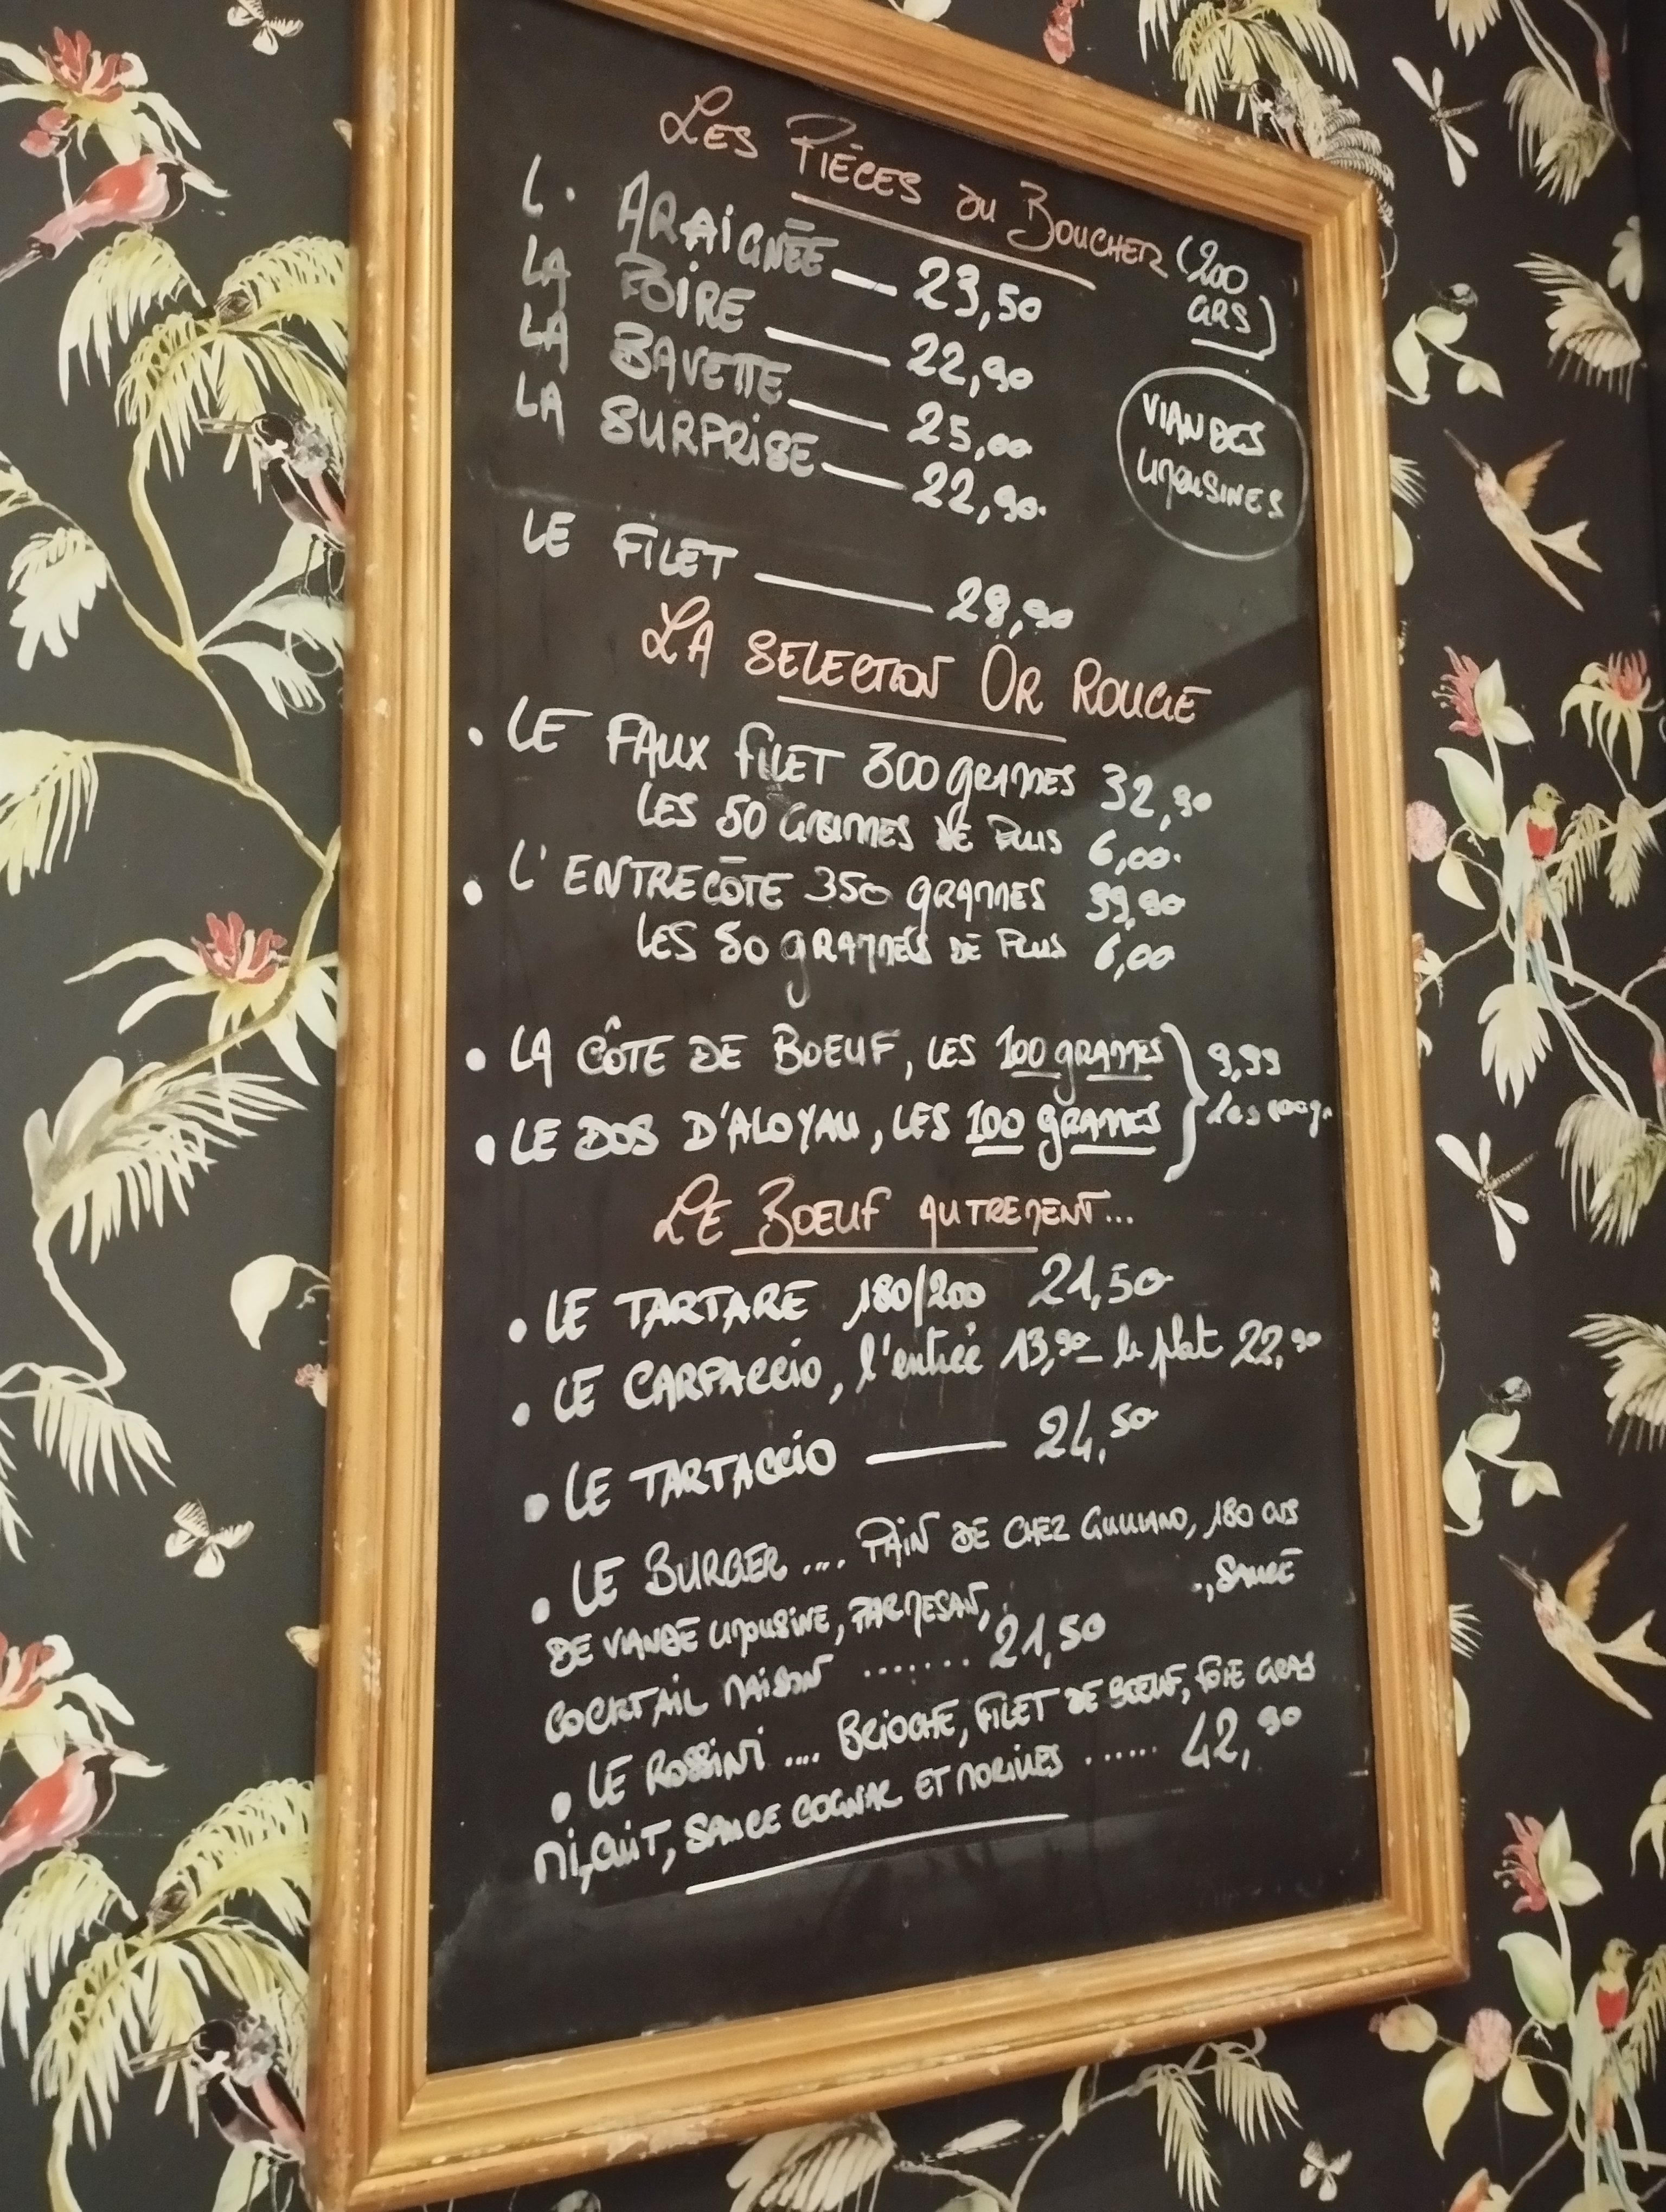 Les Pièces du Boucher (200 GRS)
L' ARAIGNÉE — 23,50
LA POIRE — 22,90
LA BAVETTE — 25,00
LA SURPRISE — 22,90
VIANDES
LIMOUSINES
LE FILET — 28,90
LA SELECTION OR ROUGE
• LE FAUX FILET 300 grammes 32,90
LES 50 GRAMMES DE PLUS 6,00
• L'ENTRECÔTE 350 grammes 39,90
LES 50 grammes DE PLUS 6,00
• LA CÔTE DE BOEUF, LES 100 grammes
• LE DOS D'ALOYAU, LES 100 grammes
} 9,99
les 100gr
LE BOEUF AUTREMENT...
• LE TARTARE 180/200 21,50
• LE CARPACCIO, l'entrée 13,90 – le plat 22,90
• LE TARTACCIO — 24,50
• LE BURGER .... PAIN DE CHEZ GIULIANO, 180 GRS
DE VIANDE LIMOUSINE, PARMESAN, SAUCE
COCKTAIL MAISON ....... 21,50
• LE ROSSINI .... BRIOCHE, FILET DE BOEUF, FOIE GRAS
MI,CUIT, SAUCE COGNAC ET MORILLES ...... 42,90